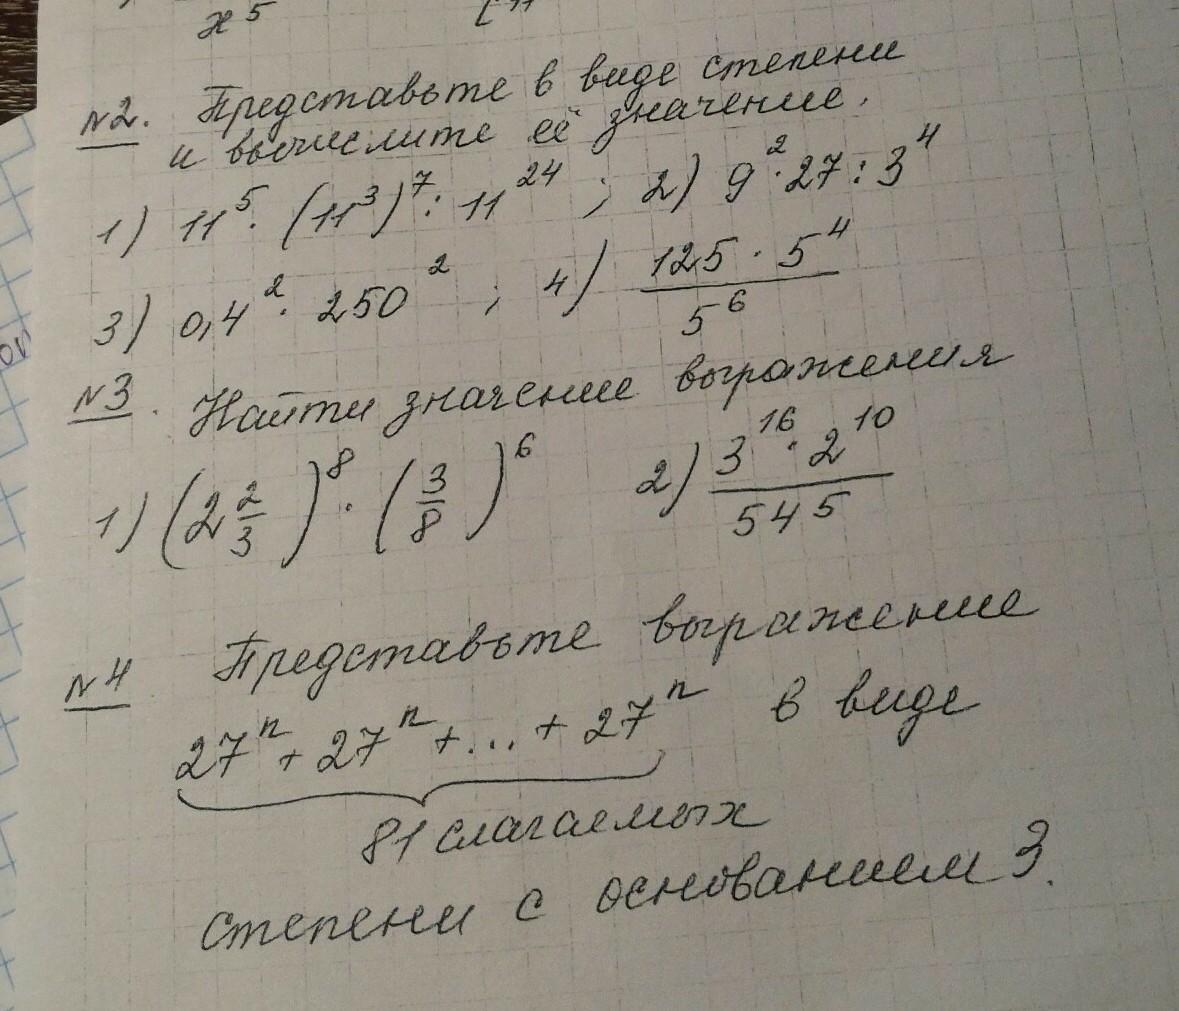 х⁵
№2. Представьте в виде степени
и вычислите её значение.
1) 11⁵ · (11³)⁷ : 11²⁴ ; 2) 9² · 27 : 3⁴
3) 0,4² · 250² ; 4) (125 · 5⁴)/5⁶
№3. Найти значение выражения
1) (2 2/3)⁸ · (3/8)⁶ 2) (3¹⁶ · 2¹⁰)/54⁵
№4 Представьте выражение
27ⁿ + 27ⁿ + ... + 27ⁿ в виде
81 слагаемых
степени с основанием 3.